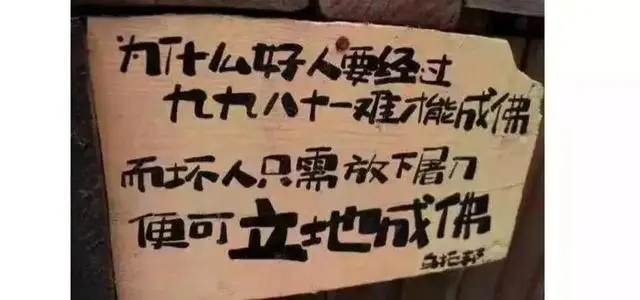 为什么好人要经过
九九八十一难才能成佛
而坏人只需放下屠刀
便可立地成佛